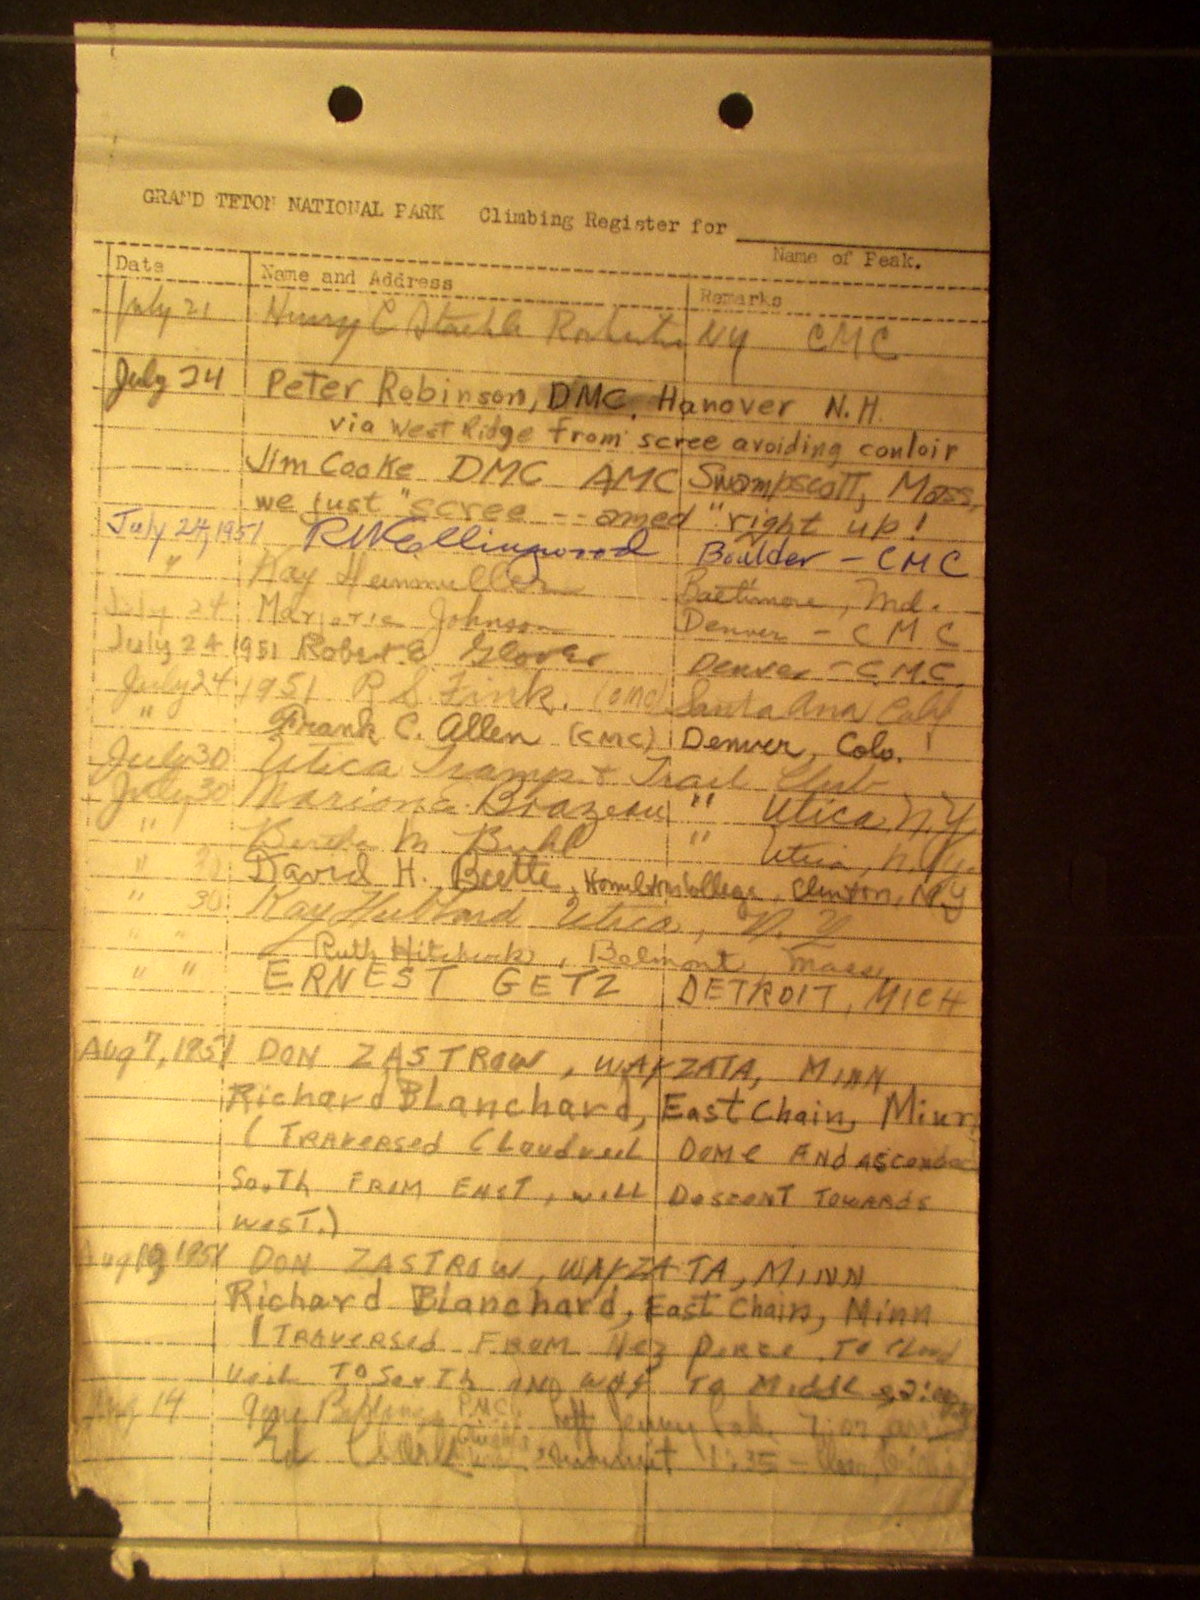 GRAND TETON NATIONAL PARK Climbing Register for
Name of Peak.
Date Name and Address Remarks
July 21 Henry C Staehle NY CMC
July 24 Peter Robinson, DMC, Hanover N.H.
via West Ridge from scree avoiding couloir
Jim Cooke DMC AMC Swampscott, Mass.
we just "scree -- amed" right up!
July 24, 1951 R W Collingwood Boulder - CMC
" Kay Baltimore, Md.
July 24 Marjorie Johnson Denver - CMC
July 24 1951 Robert E Glover Denver - C.M.C.
July 24 1951 R S Fink. (CMC) Santa Ana Calif
" Frank C. Allen (CMC) Denver, Colo.
July 30 Utica Tramp & Trail Club
July 30 Brazeau " Utica N.Y.
" Bertha M Buhl " Utica, N.Y.
" 30 David H. Hamilton College, Clinton, NY
" 30 Kay Hubbard Utica, N. Y.
" " Ruth Hitchcock, Belmont, Mass.
" " ERNEST GETZ DETROIT, MICH
Aug 7, 1951 DON ZASTROW, WAYZATA, MINN
Richard Blanchard, East Chain, Minn
(TRAVERSED Cloudveil DOME AND ASCENDED
South FROM EAST, will DESCENT TOWARDS
WEST.)
1951 DON ZASTROW, WAYZATA, MINN
Richard Blanchard, East Chain, Minn
(TRAVERSED FROM NEZ PERCE TO Cloud
veil TO South AND WAY TO Middle
Aug 14 left Jenny Lake
Ed summit 11:35